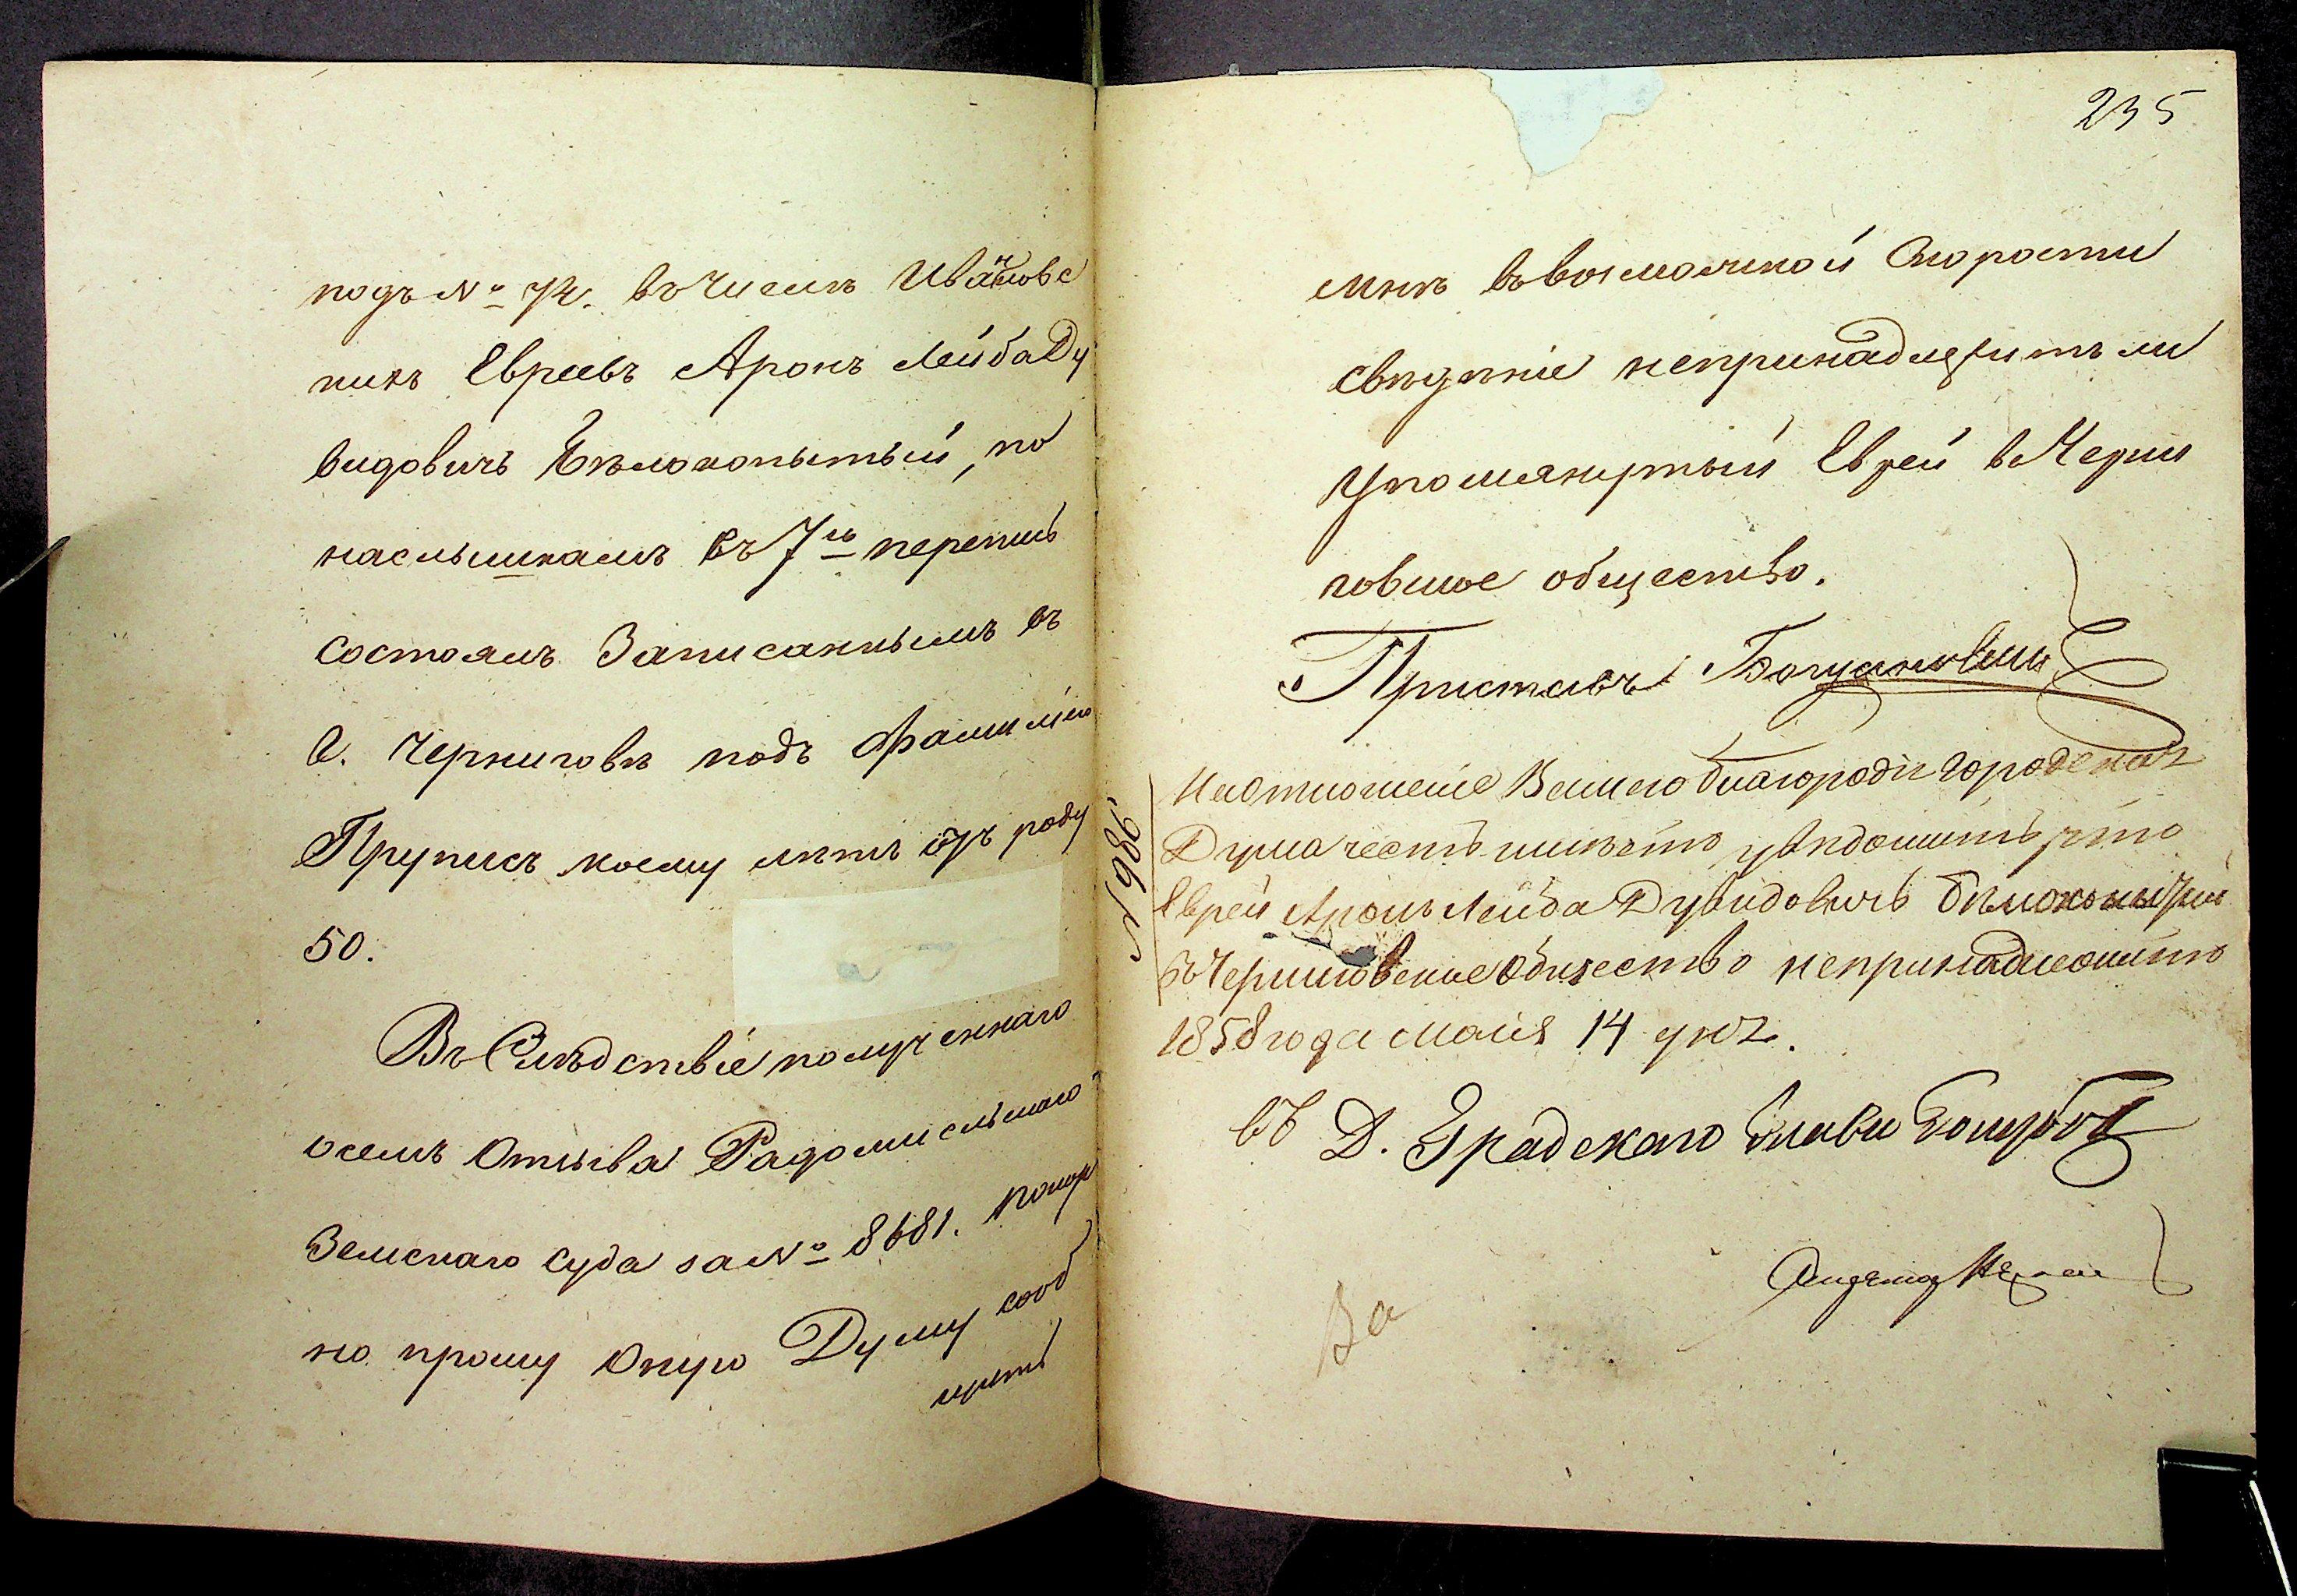 подъ № 74. въ числѣ Ивановс
кихъ Евреевъ Аронъ Лейба Ду
видовичъ Бѣлокопытый, по
наслышкамъ въ 7ю перепись
состоялъ Записаннымъ въ
г. Черниговѣ подъ Фамиліею
Пруписъ коему лѣтъ отъ роду
50.
Въ Слѣдствіе полученнаго
о семъ Отзыва Радомисльскаго
Земскаго Суда за № 8681. покор
но прошу Оную Думу сооб
щить
235
мнѣ въ возможной Скорости
свѣденіе непринадлежитъ ли
Упомянутый Еврей в Черни
говское общество.
Приставъ
№ 986
На отношеніе Вашего благородія Городская
Дума честь имѣетъ увѣдомить что
Еврей Аронъ Лейба Дувидовичъ бѣлокопытый
въ Черниговское Общество непринадлежитъ
1858 года Маія 14 дня.
въ Д. Градскаго Главы
За